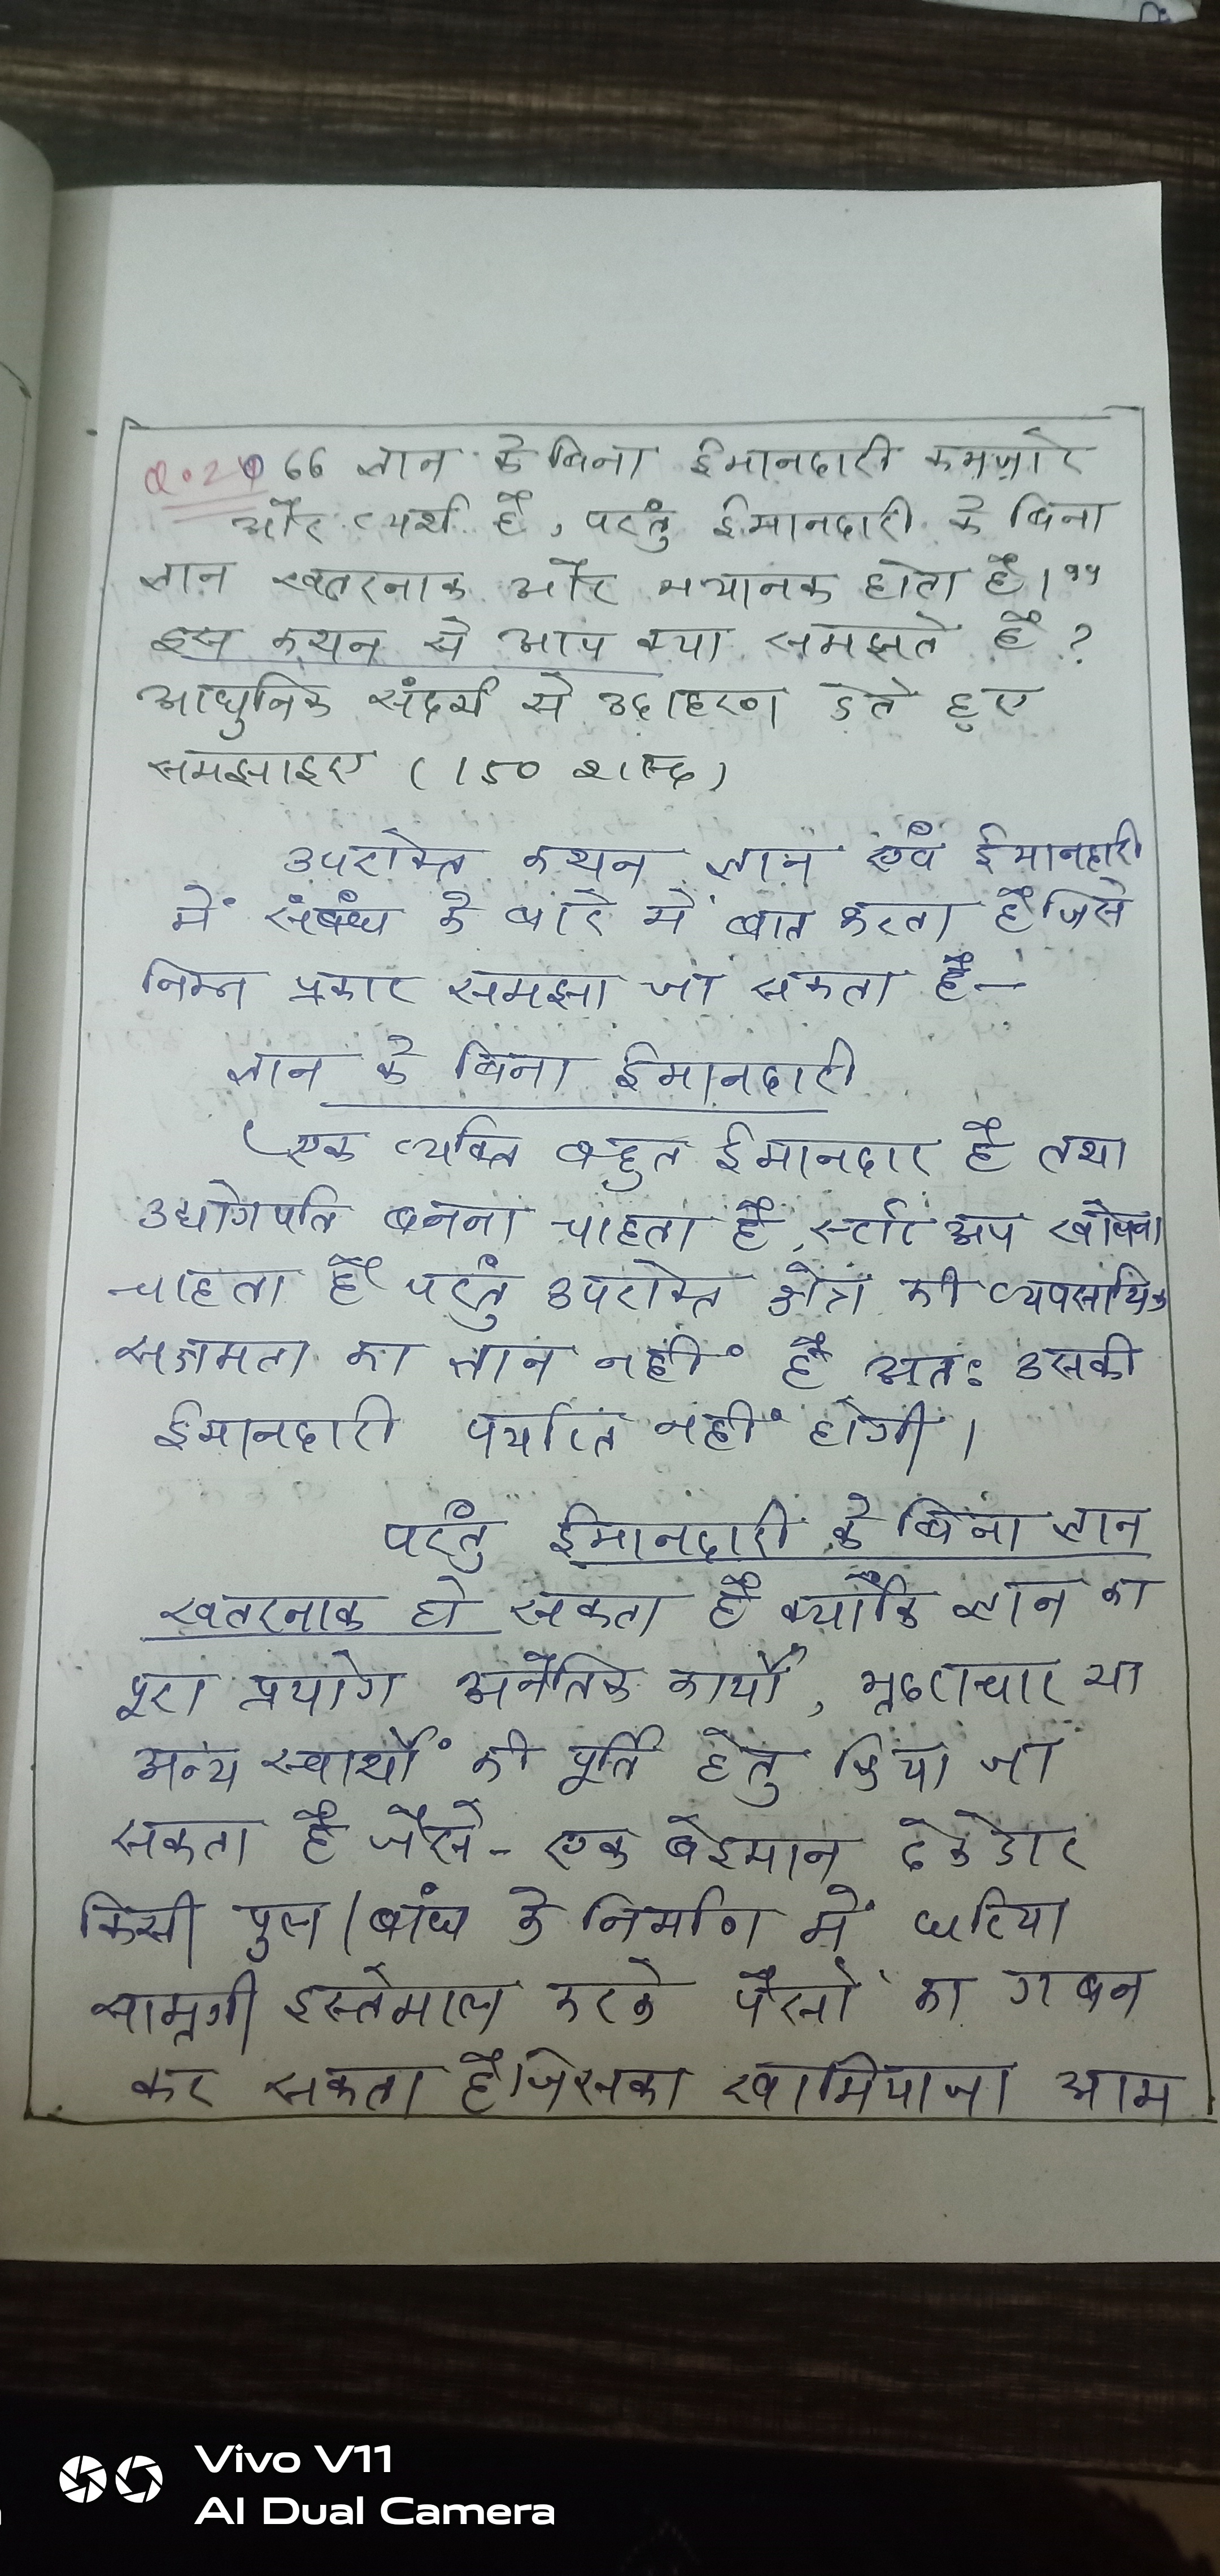 Q.2 "ज्ञान के बिना ईमानदारी कमज़ोर
और व्यर्थ है, परंतु ईमानदारी के बिना
ज्ञान खतरनाक और भयानक होता है।"
इस कथन से आप क्या समझते हैं?
आधुनिक संदर्भ से उदाहरण देते हुए
समझाइए (150 शब्द)
उपरोक्त कथन ज्ञान एवं ईमानदारी
में संबंध के बारे में बात करता है जिसे
निम्न प्रकार समझा जा सकता है-
ज्ञान के बिना ईमानदारी
एक व्यक्ति बहुत ईमानदार है तथा
उद्योगपति बनना चाहता है, स्टार्ट अप खोलना
चाहता है परंतु उपरोक्त क्षेत्र की व्यवसायिक
सक्षमता का ज्ञान नहीं है अतः उसकी
ईमानदारी पर्याप्त नहीं होगी।
परंतु ईमानदारी के बिना ज्ञान
खतरनाक हो सकता है क्योंकि ज्ञान का
पूरा प्रयोग अनैतिक कार्यों, भ्रष्टाचार या
अन्य स्वार्थों की पूर्ति हेतु किया जा
सकता है जैसे- एक बेईमान ठेकेदार
किसी पुल/बांध के निर्माण में घटिया
सामग्री इस्तेमाल करके पैसों का गबन
कर सकता है जिसका खामियाजा आम
Vivo V11
AI Dual Camera